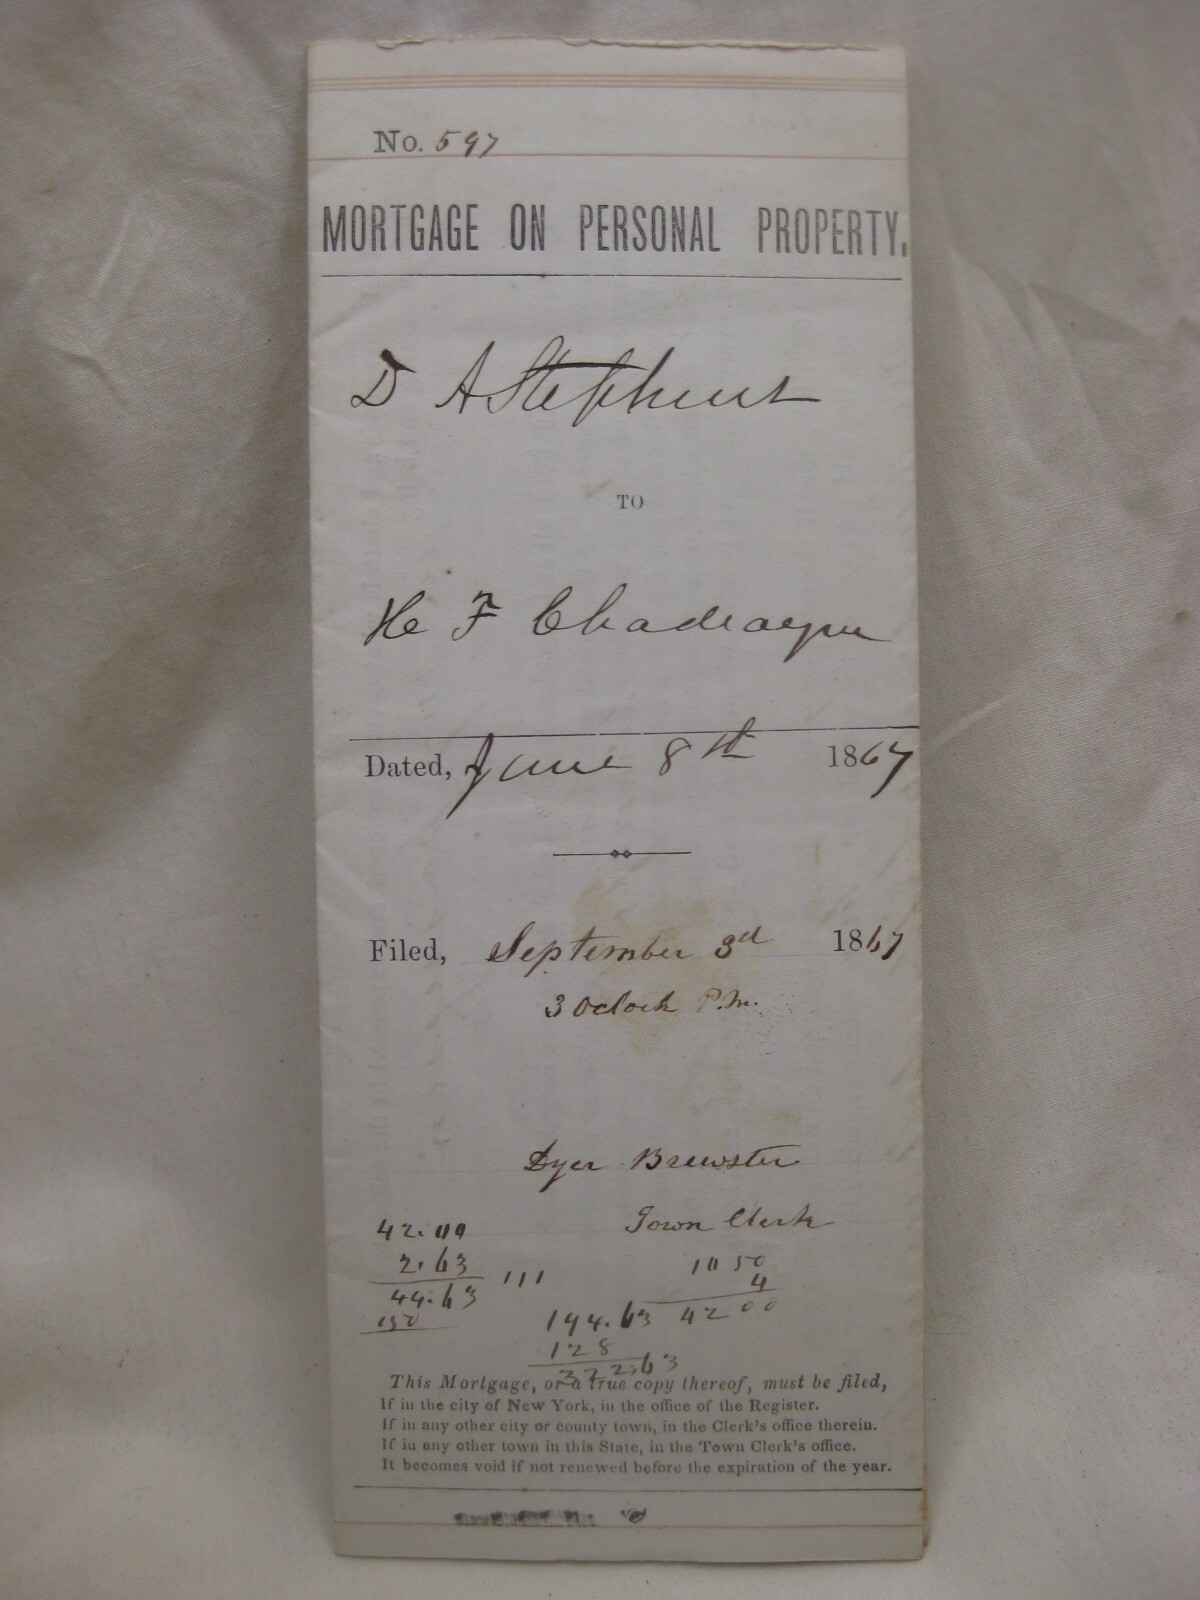 No. 597
MORTGAGE ON PERSONAL PROPERTY.
D A Stephens
TO
H F
Dated, June 8th 1867
Filed, September 3d 1867
3 Oclock P.M.
Dyer Brewster
Town Clerk
42.00
2.63
44.63
150
111
10 50
4
42 00
194.63
128
322.63
This Mortgage, or a true copy thereof, must be filed,
If in the city of New York, in the office of the Register.
If in any other city or county town, in the Clerk's office therein.
If in any other town in this State, in the Town Clerk's office.
It becomes void if not renewed before the expiration of the year.